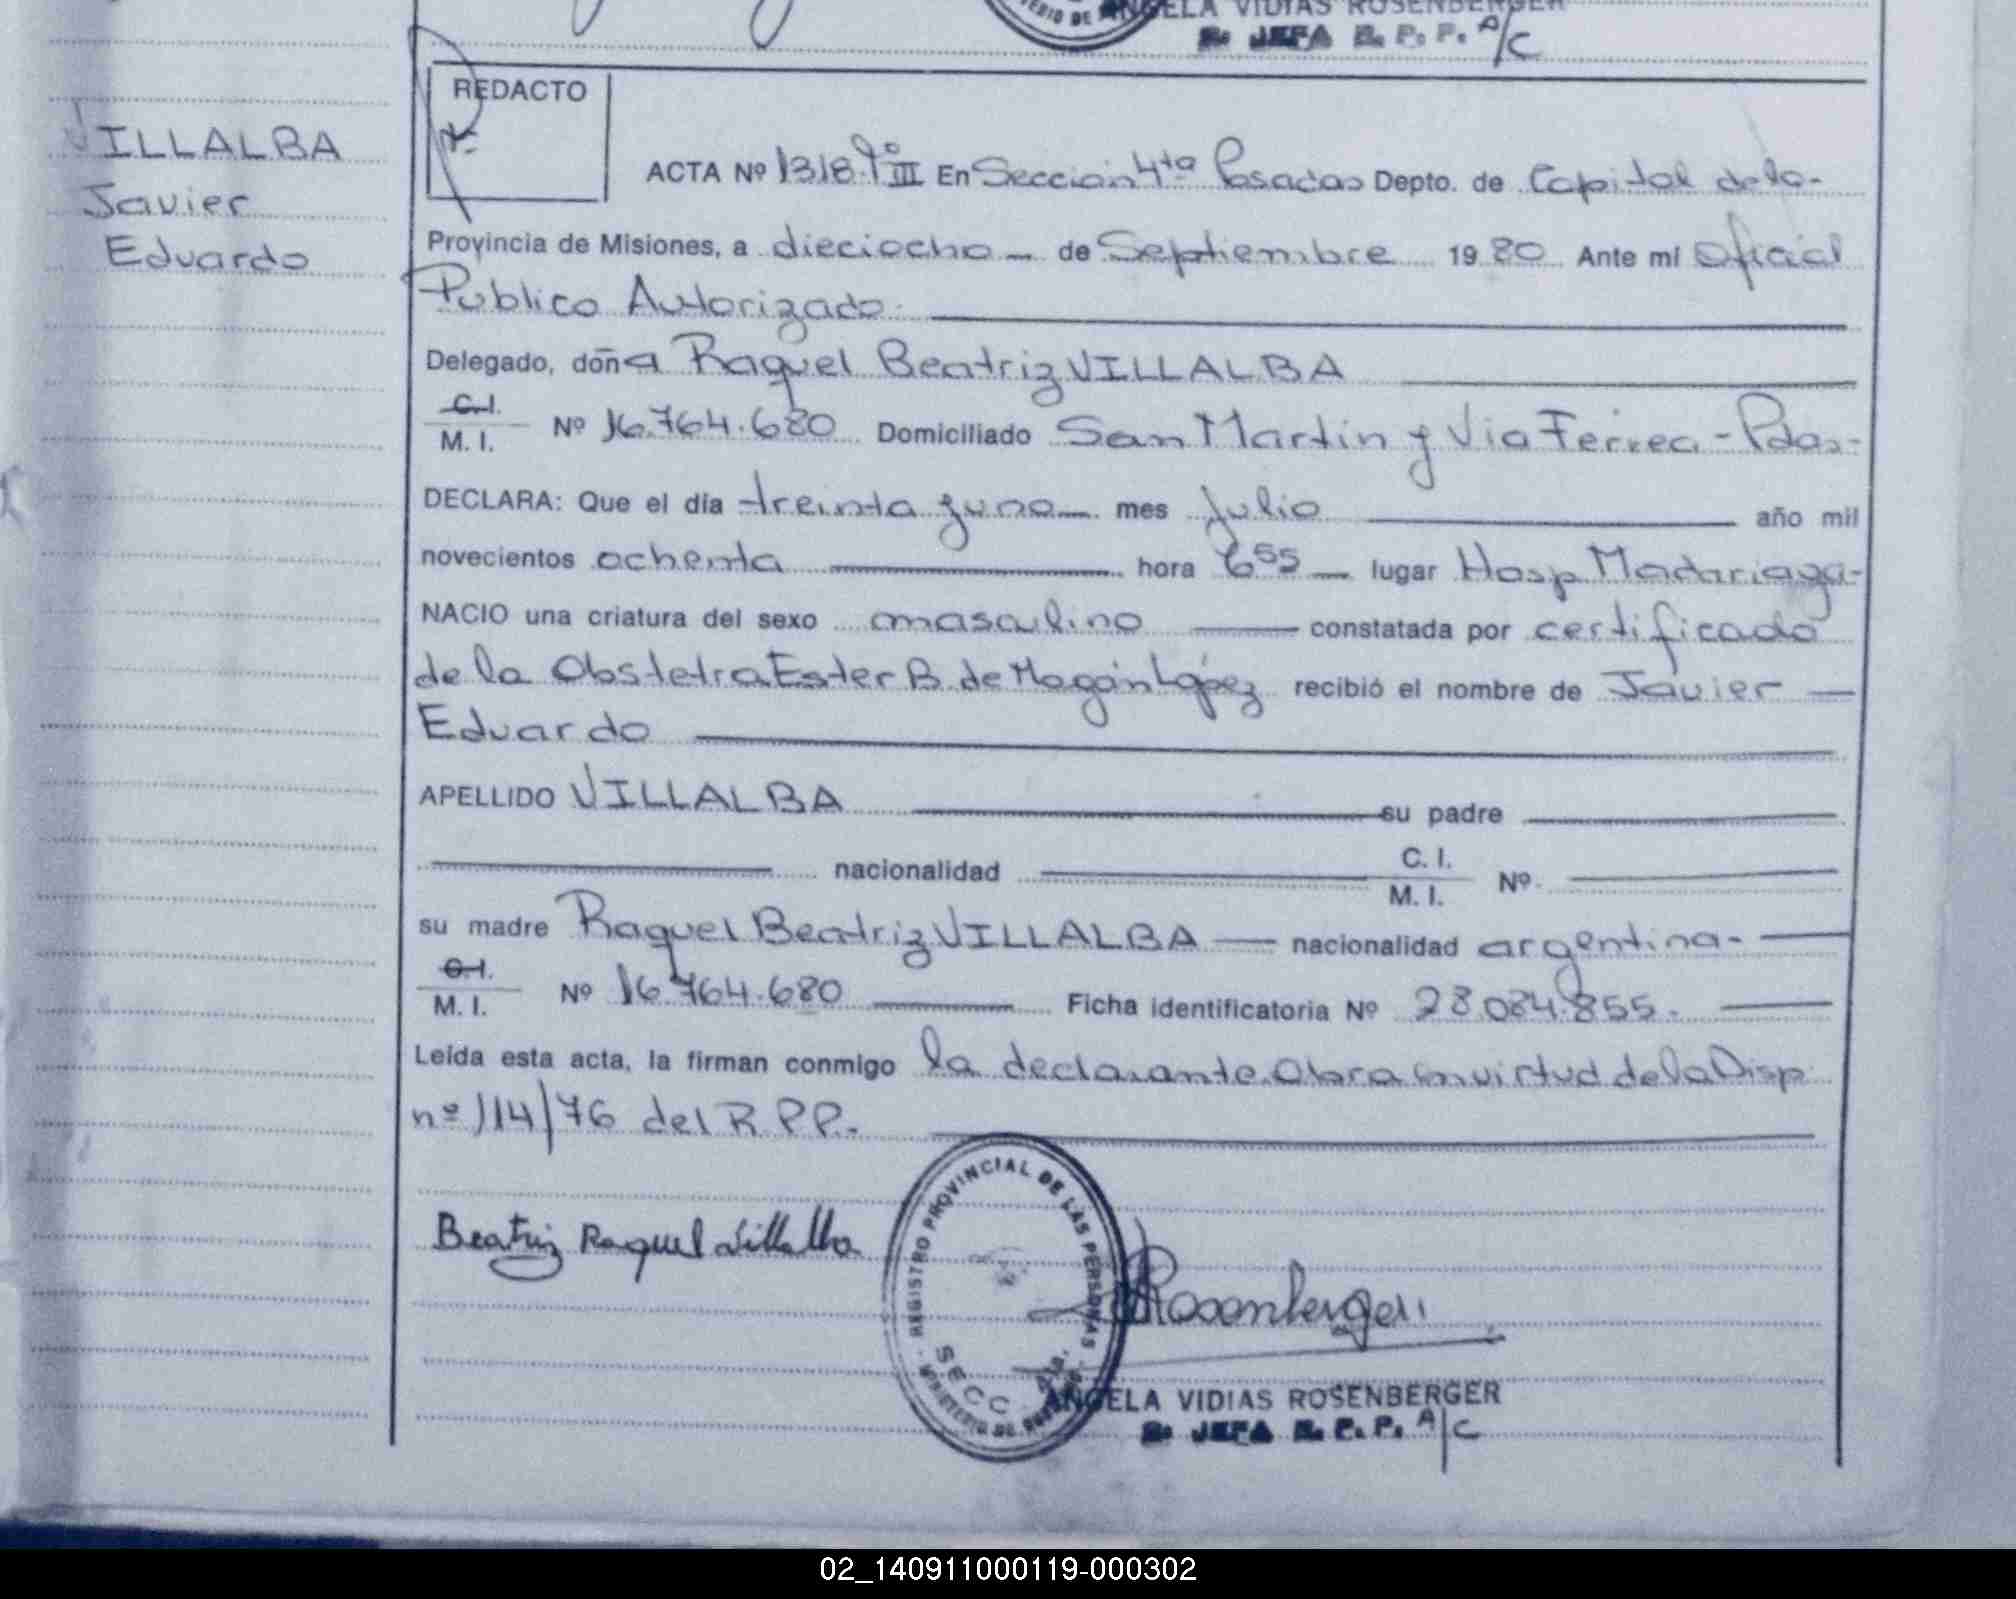 ANGELA VIDIAS ROSENBERGER
JEFA R. P. P. A/C
REDACTO
VILLALBA
Javier
Eduardo
ACTA Nº 1318 Tº III En Sección 4ta Posadas Depto. de Capital de la-
Provincia de Misiones, a dieciocho - de Septiembre 19 80 Ante mi Oficial
Publico Autorizado.
Delegado, doña Raquel Beatriz VILLALBA
C.I.
M. I. Nº 16.764.680 Domiciliado San Martin y Via Ferrea - Pdas-
DECLARA: Que el día treinta y uno mes Julio año mil
novecientos ochenta hora 6 55 lugar Hosp Madariaga-
NACIO una criatura del sexo masculino constatada por certificado
de la Obstetra Ester B. de Magán López recibió el nombre de Javier
Eduardo
APELLIDO VILLALBA su padre
nacionalidad C. I.
M. I. Nº
su madre Raquel Beatriz VILLALBA nacionalidad argentina-
C.I.
M. I. Nº 16.764.680 Ficha identificatoria Nº 28.084.855.
Leída esta acta, la firman conmigo la declarante. Obra en virtud de la Disp
nº 114/76 del R P P.
Beatriz Raquel Villalba
REGISTRO PROVINCIAL DE LAS PERSONAS
SECC
MINISTERIO DE
Rosenberger
ANGELA VIDIAS ROSENBERGER
JEFA R. P. P. A/C
02_140911000119-000302